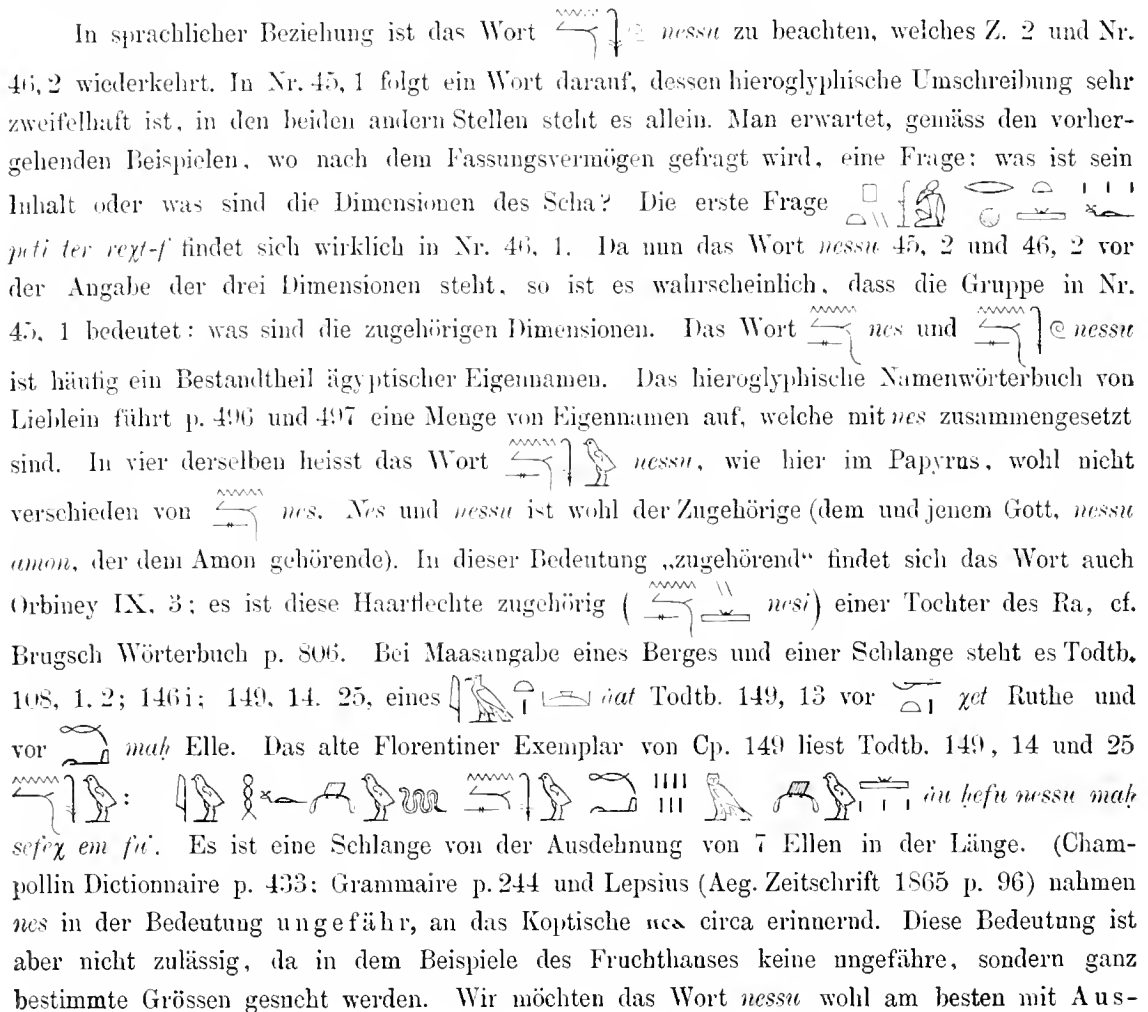 In sprachlicher Beziehung ist das Wort nessu zu beachten, welches Z. 2 und Nr.
46, 2 wiederkehrt. In Nr. 45, 1 folgt ein Wort darauf, dessen hieroglyphische Umschreibung sehr
zweifelhaft ist, in den beiden andern Stellen steht es allein. Man erwartet, gemäss den vorher-
gehenden Beispielen, wo nach dem Fassungsvermögen gefragt wird, eine Frage: was ist sein
Inhalt oder was sind die Dimensionen des Scha? Die erste Frage
peti ter reχt-f findet sich wirklich in Nr. 46, 1. Da nun das Wort nessu 45, 2 und 46, 2 vor
der Angabe der drei Dimensionen steht, so ist es wahrscheinlich, dass die Gruppe in Nr.
45, 1 bedeutet: was sind die zugehörigen Dimensionen. Das Wort nes und nessu
ist häufig ein Bestandtheil ägyptischer Eigennamen. Das hieroglyphische Namenwörterbuch von
Lieblein führt p. 496 und 497 eine Menge von Eigennamen auf, welche mit nes zusammengesetzt
sind. In vier derselben heisst das Wort nessu, wie hier im Papyrus, wohl nicht
verschieden von nes. Nes und nessu ist wohl der Zugehörige (dem und jenem Gott, nessu
amon, der dem Amon gehörende). In dieser Bedeutung „zugehörend“ findet sich das Wort auch
Orbiney IX, 3; es ist diese Haarflechte zugehörig ( nesi) einer Tochter des Ra, cf.
Brugsch Wörterbuch p. 806. Bei Maasangabe eines Berges und einer Schlange steht es Todtb.
108, 1. 2; 146 i; 149, 14. 25, eines áat Todtb. 149, 13 vor χet Ruthe und
vor maḥ Elle. Das alte Florentiner Exemplar von Cp. 149 liest Todtb. 149, 14 und 25
: áu ḥefu nessu maḥ
sefeχ em fu. Es ist eine Schlange von der Ausdehnung von 7 Ellen in der Länge. (Cham-
pollin Dictionnaire p. 433; Grammaire p. 244 und Lepsius (Aeg. Zeitschrift 1865 p. 96) nahmen
nes in der Bedeutung ungefähr, an das Koptische ⲛⲥⲁ circa erinnernd. Diese Bedeutung ist
aber nicht zulässig, da in dem Beispiele des Fruchthauses keine ungefähre, sondern ganz
bestimmte Grössen gesucht werden. Wir möchten das Wort nessu wohl am besten mit Aus-